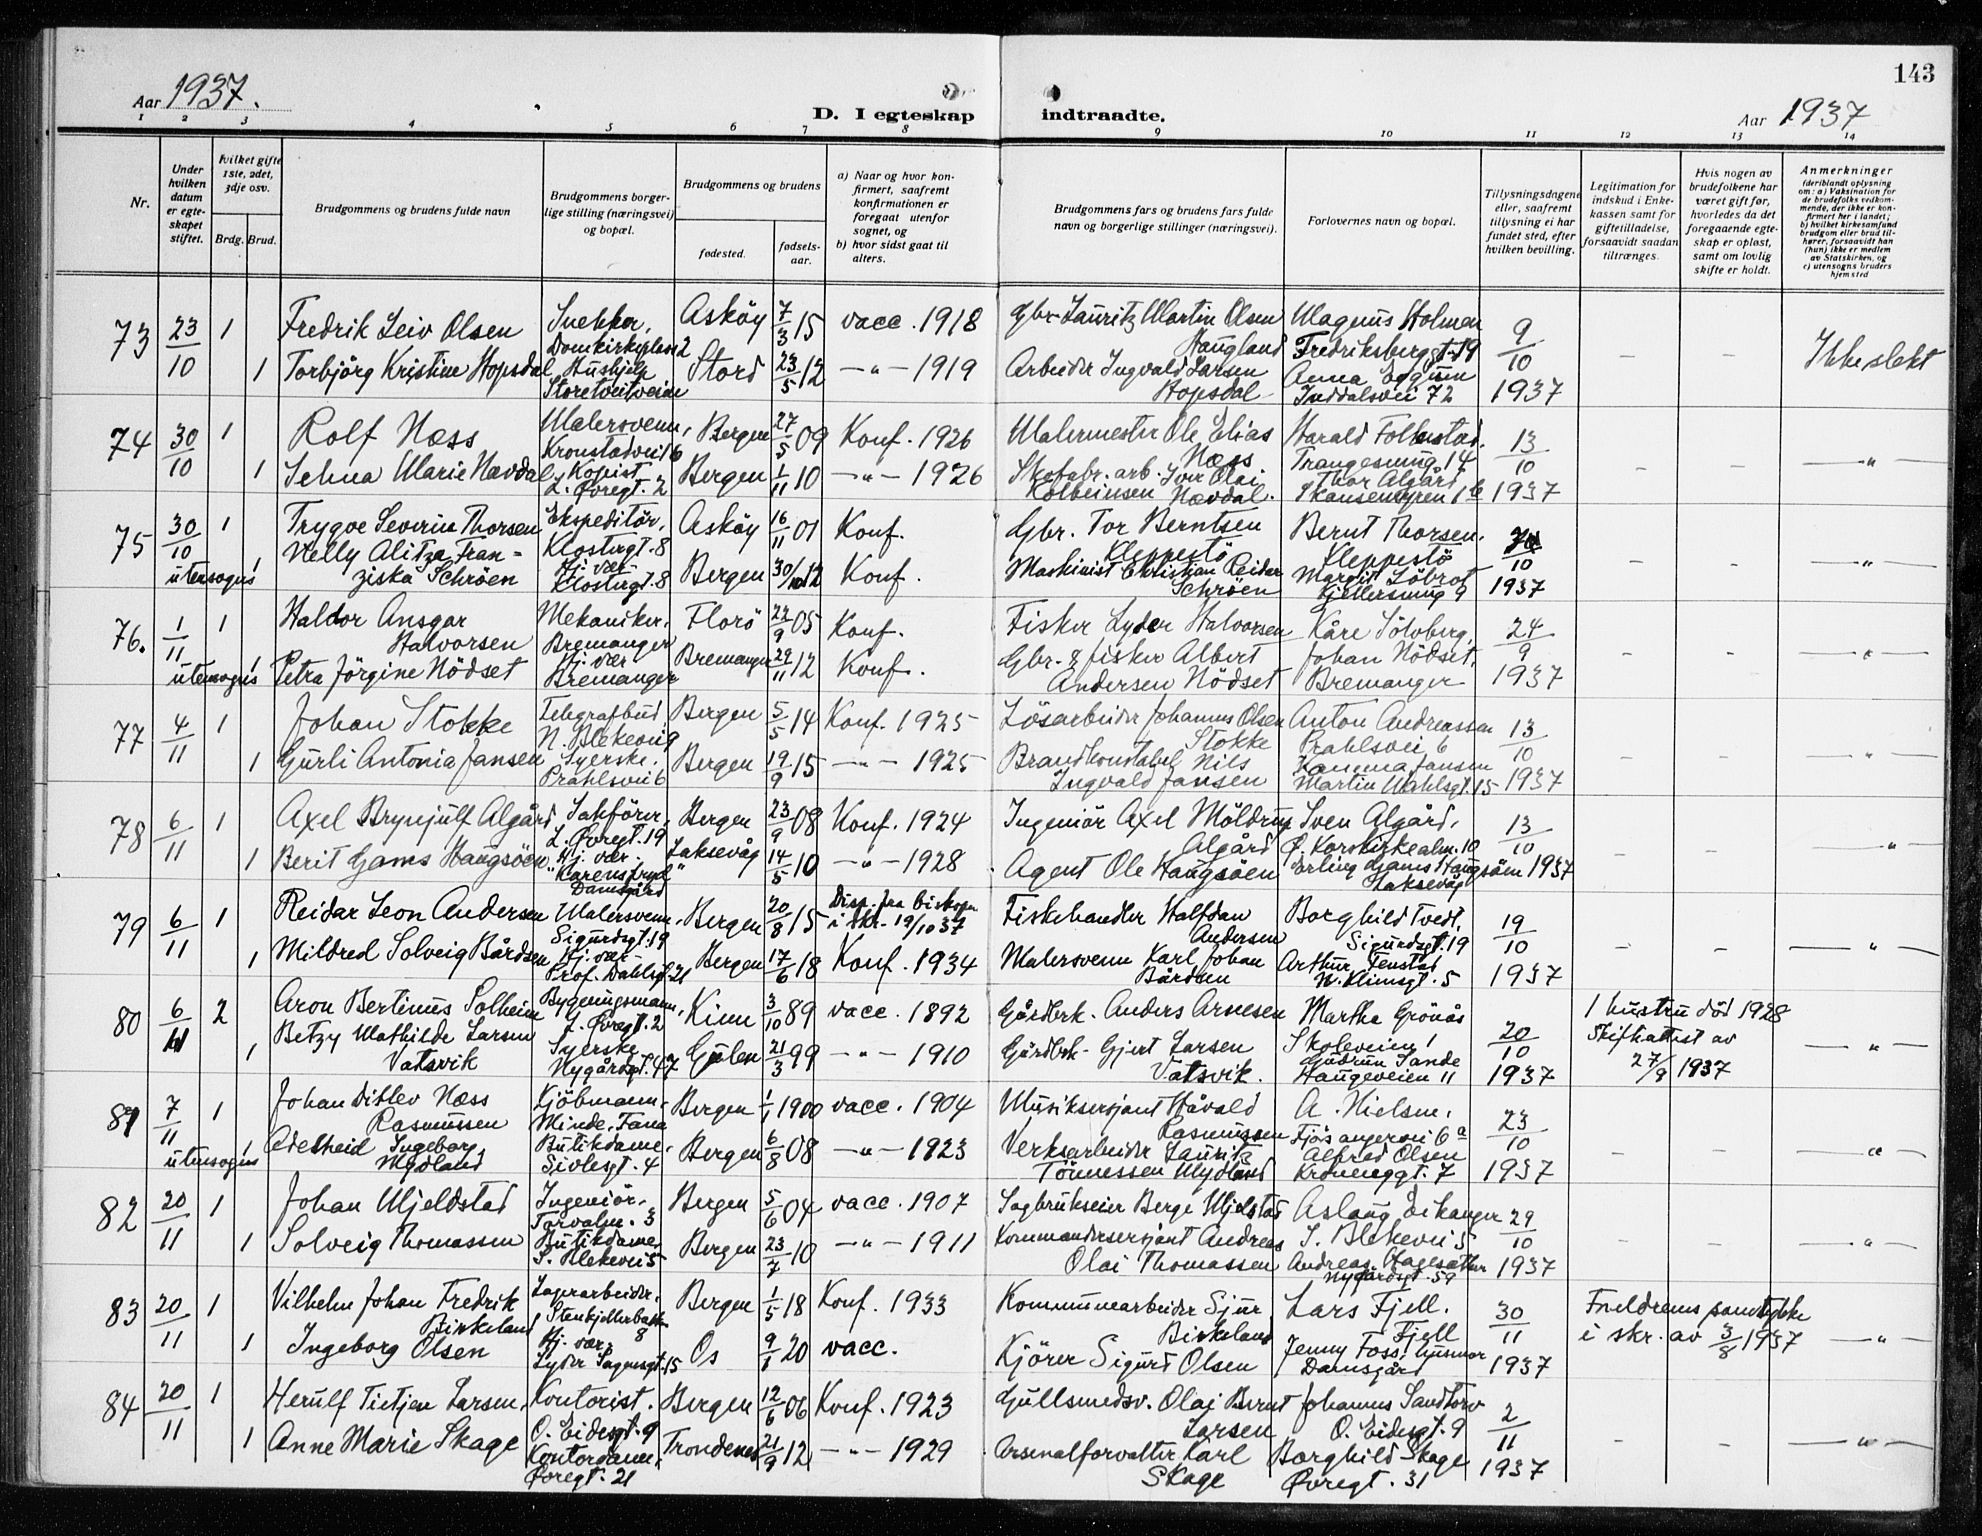 143
Aar 1937.
D. I egteskap indtraadte.
Aar 1937
1 2 3 4 5 6 7 8 9 10 11 12 13 14
Nr.
Under hvilken datum er egteskapet stiftet.
Hvilket gifte 1ste, 2det, 3dje osv.
Brdg. Brud.
Brudgommens og brudens fulde navn
Brudgommens borgerlige stilling (næringsvei) og bopæl.
Brudgommens og brudens
fødested.
fødselsaar.
a) Naar og hvor konfirmert, saafremt konfirmationen er foregaat utenfor sognet, og
b) hvor sidst gaat til alters.
Brudgommens fars og brudens fars fulde navn og borgerlige stillinger (næringsvei).
Forlovernes navn og bopæl.
Tillysningsdagene eller, saafremt tillysning ei har fundet sted, efter hvilken bevilling.
Legitimation for indskud i Enkekassen samt for giftetilladelse, forsaavidt saadan tiltrænges.
Hvis nogen av brudefolkene har været gift før, hvorledes da det foregaaende egteskap er opløst, samt om lovlig skifte er holdt.
Anmerkninger
(deriblandt oplysning om: a) Vaksination for de brudefolks vedkommende, der ikke er konfirmert her i landet; b) hvilket kirkesamfund brudgom eller brud tilhører, forsaavidt han (hun) ikke er medlem av Statskirken, og c) utensogns bruders hjemsted
73 23/10 1 Fredrik Leiv Olsen Snekker, Domkirkeplass 2 Asköy 7/3 15 vacc. 1918 Gbr. Lauritz Martin Olsen Haugland Magnus Holmen Fredriksbergt. 19 9/10 1937 – – Ikke slekt
1 Torbjörg Kristine Hopsdal Hushjelp Storetveitveien Stord 23/5 12 –"– 1919 Arbeider Ingvald Larsen Hopsdal Anna Inddalsvei 72
74 30/10 1 Rolf Næss Malersvenn, Kronstadvei 16 Bergen 27/5 09 Konf. 1926 Malermester Ole Elias Næss Harald Folkestad. Trangesmug 14 13/10 1937 – – –"–
1 Selma Marie Navdal Kopist L. Øvregt. 2 Bergen 1/11 10 –"– 1926 Skofabr. arb. Iver Olai Kolbeinsen Nævdal. Thor Algård Skansemyren 16
75 30/10 utensogns 1 Trygve Severin Thorsen Ekspeditör, Klostergt. 8 Asköy 16/11 01 Konf. Gbr. Tor Berntsen Kleppestö Bernt Thorsen. Kleppestö /10 1937 – – –"–
1 Nelly Alitza Franziska Schröen Hj. vær. Klostergt. 8 Bergen 30/10 12 Konf. Maskinist Christian Reidar Schröen Margit Löbrot Kjellersmug 9
76. 1/11 utensogns 1 Haldor Ansgar Halvorsen Mekaniker, Bremanger Florö 22/9 05 Konf. Fisker Lyder Halvorsen Kåre Sölvberg, 24/9 1937 – – –"–
1 Petra Jörgine Nödset Hj. vær Bremanger Bremanger 29/11 12 Konf. Gbr. & fisker Albert Andersen Nödset Johan Nödset, Bremanger
77 4/11 1 Johan Stokke Telegrafbud N. Blekevei 9 Bergen 5/5 14 Konf. 1925 Lösarbeider Johannes Olsen Stokke Anton Andreassen Prahlsvei 6 13/10 1937 – – –"–
1 Gurli Antonia Jansen Syerske. Prahlsvei 6 Bergen 19/9 15 –"– 1925 Brandkonstabel Nils Ingvald Jansen Jansen Martin Wahlsgt. 15
78 6/11 1 Axel Brynjulf Algård Sakförer, L. Øvregt. 19 Bergen 23/9 08 Konf. 1924 Ingeniör Axel Möldrup Algård Sven Algård, Ø. Korskirkealm. 10 13/10 1937 – – –"–
1 Berit Gams Haugsöen Hj. vær "Karensfryd" Damsgård Laksevåg 14/5 10 –"– 1928 Agent Ole Haugsöen Erling Gams Haugsöen Laksevåg
79 6/11 1 Reidar Leon Andersen Malersvenn, Sigurdsgt. 19 Bergen 20/8 15 Disp. fra biskopen i skr. 19/10 37 Fiskehandler Halfdan Andersen Borghild Tvedt, Sigurdsgt. 19 19/10 1937 – – –"–
1 Mildred Solveig Bårdsen Hj. vær Prof. Dahlsgt. 21 Bergen 17/6 18 Konf. 1934 Malersvenn Karl Johan Bårdsen Arthur Fenstad N. Klimsgt. 5
80 6/11 2 Aron Bertinus Solheim Bygningsmann, L. Øvregt. 2 Kinn 3/10 89 vacc. 1892 Gårdbrk. Anders Arnesen Martha Grönås Skoleveien 1 20/10 1937 1 hustru död 1928 Skifteattest av 27/9 1937 –"–
1 Betzy Mathilde Larsen Vatsvik Syerske Nygårdsgt. 47 Gulen 21/3 99 –"– 1910 Gårdbrk. Gjert Larsen Vatsvik. Gudrun Sande Haugeveien 11
81 7/11 utensogns 1 Johan Ditlev Næss Rasmussen Kjöbmann, Minde, Fana Bergen 1/1 1900 vacc. 1904 Musiksersjant Håvald Rasmussen A. Nielsen, Fjösangervei 6a 23/10 1937 – – –"–
1 Adelheid Ingeborg Mydland Butikdame, Sivlesgt. 4 Bergen 6/8 08 –"– 1923 Verksarbeider Laurits Tönnessen Mydland Alfred Olsen Kroneneggt. 7
82 20/11 1 Johan Mjeldstad Ingeniör, Torvalm. 3 Bergen 5/6 04 vacc. 1907 Sagbrukseier Berge Mjelstad Aslaug Eikanger S. Blekevei 5 29/10 1937 – – –"–
1 Solveig Thomassen Butikdame, S. Blekevei 5 Bergen 23/7 10 –"– 1911 Kommandersersjant Andreas Olai Thomassen Andreas Hagesæther Nygårdsgt. 59
83 20/11 1 Vilhelm Johan Fredrik Birkeland Lagerarbeider, Stenkjellerbakken 8 Bergen 1/5 18 Konf. 1933 Kommunearbeider Sjur Birkeland Lars Fjell. Fjell 30/11 1937 Foreldrenes samtykke i skr. av 3/8 1937 –"–
1 Ingeborg Olsen Hj. vær, Lyder Sagensgt. 15 Os 9/1 20 vacc. Kjörer Sigurd Olsen Jenny Foss, Damsgård
84 20/11 1 Herulf Tietjen Larsen, Kontorist. O. Eidesgt. 9 Bergen 12/6 06 Konf. 1923 Gullsmedsv. Olai Bernt Larsen Johannes Sandtorv O. Eidesgt. 9 2/11 1937 – – –"–
1 Anne Marie Skage Kontordame, Øvregt. 21 Trondenes 21/9 12 –"– 1929 Arsenalforvalter Karl Skage Borghild Skage Øvregt. 31